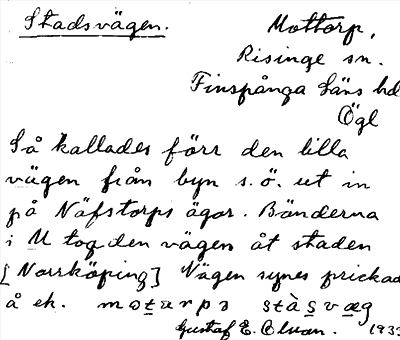 Stadsvägen.
Mottorp,
Risinge sn.
Finspånga läns hd
Ögl
Så kallades förr den lilla
vägen från byn s.ö. ut in
på Näfstorps ägor. Bönderna
i M tog den vägen åt staden
[Norrköping] Vägen synes prickad
å ek. motarpə stàsvæg
Gustaf E. 1933